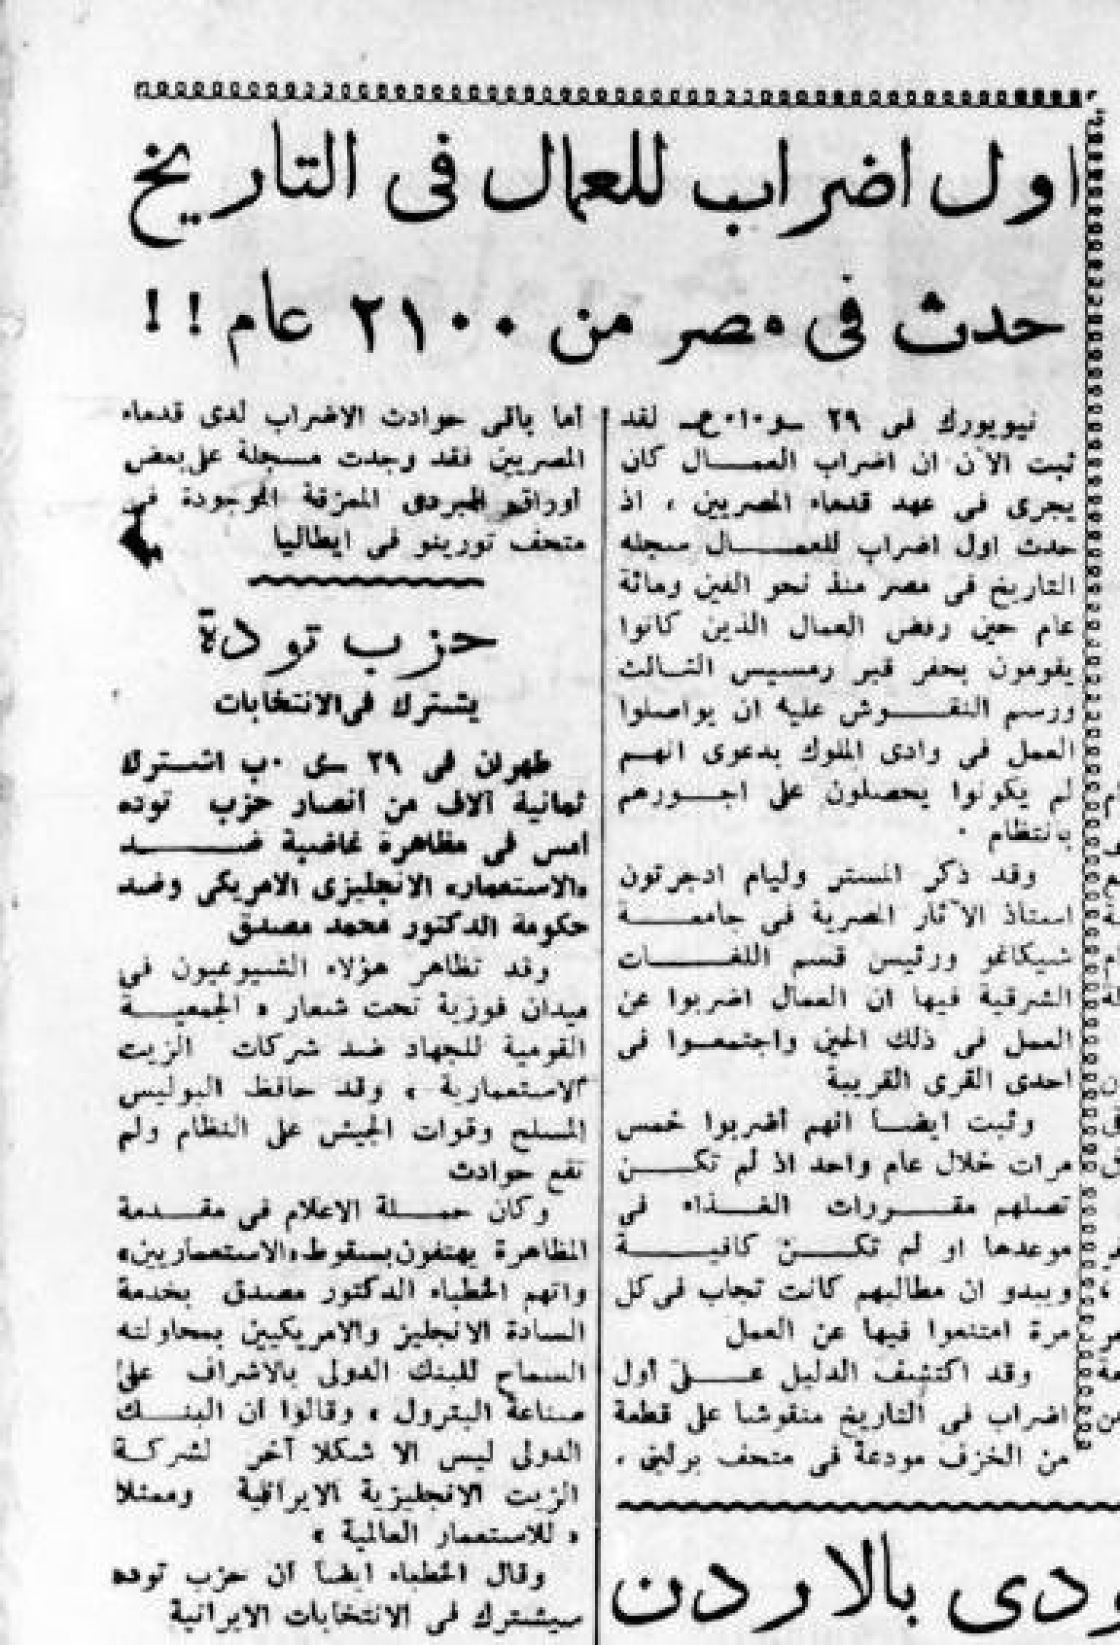 اول اضراب للعمال فى التاريخ
حدث فى مصر من ٢١٠٠ عام !!
نيويورك فى ٢٩ ـ و٠ا٠ع ـ لقد
ثبت الآن ان اضراب العمال كان
يجرى فى عهد قدماء المصريين ، اذ
حدث اول اضراب للعمال سجله
التاريخ فى مصر منذ نحو الفين ومائة
عام حين رفض العمال الذين كانوا
يقومون بحفر قبر رمسيس الثالث
ورسم النقوش عليه ان يواصلوا
العمل فى وادى الملوك بدعوى انهم
لم يكونوا يحصلون على اجورهم
بانتظام ٠
وقد ذكر المستر وليام ادجرتون
استاذ الآثار المصرية فى جامعة
شيكاغو ورئيس قسم اللغات
الشرقية فيها ان العمال اضربوا عن
العمل فى ذلك الحين واجتمعوا فى
احدى القرى القريبة
وثبت ايضا انهم أضربوا خمس
مرات خلال عام واحد اذ لم تكن
تصلهم مقررات الغذاء فى
موعدها او لم تكن كافية
ويبدو ان مطالبهم كانت تجاب فى كل
مرة امتنعوا فيها عن العمل
وقد اكتشف الدليل على أول
اضراب فى التاريخ منقوشا على قطعة
من الخزف مودعة فى متحف برلين ٠
أما باقى حوادث الاضراب لدى قدماء
المصريين فقد وجدت مسجلة على بعض
اوراق البردى الممزقة الموجودة فى
متحف تورينو فى ايطاليا
حزب تودة
يشترك فى الانتخابات
طهران فى ٢٩ ـ ى ٠ب اشترك
ثمانية آلاف من انصار حزب توده
امس فى مظاهرة غاضبة ضد
«الاستعمار» الانجليزى الامريكى وضد
حكومة الدكتور محمد مصدق
وقد تظاهر هؤلاء الشيوعيون فى
ميدان فوزية تحت شعار « الجمعية
القومية للجهاد ضد شركات الزيت
الاستعمارية » وقد حافظ البوليس
المسلح وقوات الجيش على النظام ولم
تقع حوادث
وكان حملة الاعلام فى مقدمة
المظاهرة يهتفون بسقوط «الاستعماريين»
واتهم الخطباء الدكتور مصدق بخدمة
السادة الانجليز والامريكيين بمحاولته
السماح للبنك الدولى بالاشراف على
صناعة البترول ، وقالوا ان البنك
الدولى ليس الا شكلا آخر لشركة
الزيت الانجليزية الايرانية وممثلا
« للاستعمار العالمية »
وقال الخطباء ايضا ان حزب توده
سيشترك فى الانتخابات الايرانية
ودى بالاردن